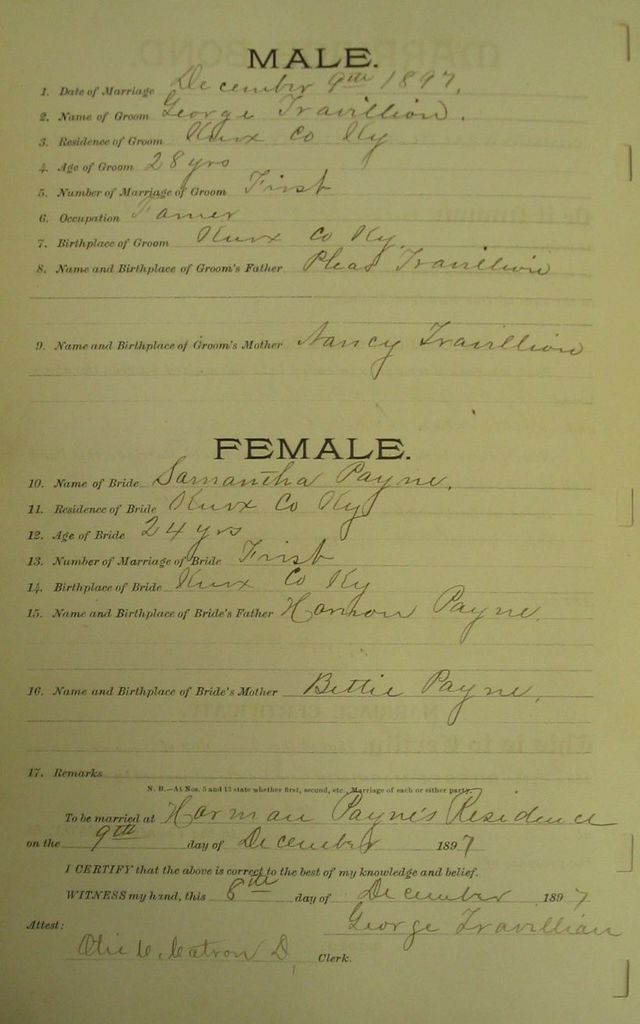 MALE.
1. Date of Marriage December 9th 1897.
2. Name of Groom George Travillion.
3. Residence of Groom Knox Co Ky
4. Age of Groom 28 yrs
5. Number of Marriage of Groom First
6. Occupation Farmer
7. Birthplace of Groom Knox Co Ky.
8. Name and Birthplace of Groom's Father Pleas Travillion
9. Name and Birthplace of Groom's Mother Nancy Travillion
FEMALE.
10. Name of Bride Samantha Payne.
11. Residence of Bride Knox Co Ky
12. Age of Bride 24 yrs
13. Number of Marriage of Bride First
14. Birthplace of Bride Knox Co Ky
15. Name and Birthplace of Bride's Father Harmon Payne.
16. Name and Birthplace of Bride's Mother Bettie Payne.
17. Remarks
N. B.—At Nos. 5 and 13 state whether first, second, etc., Marriage of each or either party.
To be married at Harman Payne's Residence
on the 9th day of December 1897
I CERTIFY that the above is correct to the best of my knowledge and belief.
WITNESS my hand, this 8th day of December, 1897
Attest: George Travillian
Catron D, Clerk.